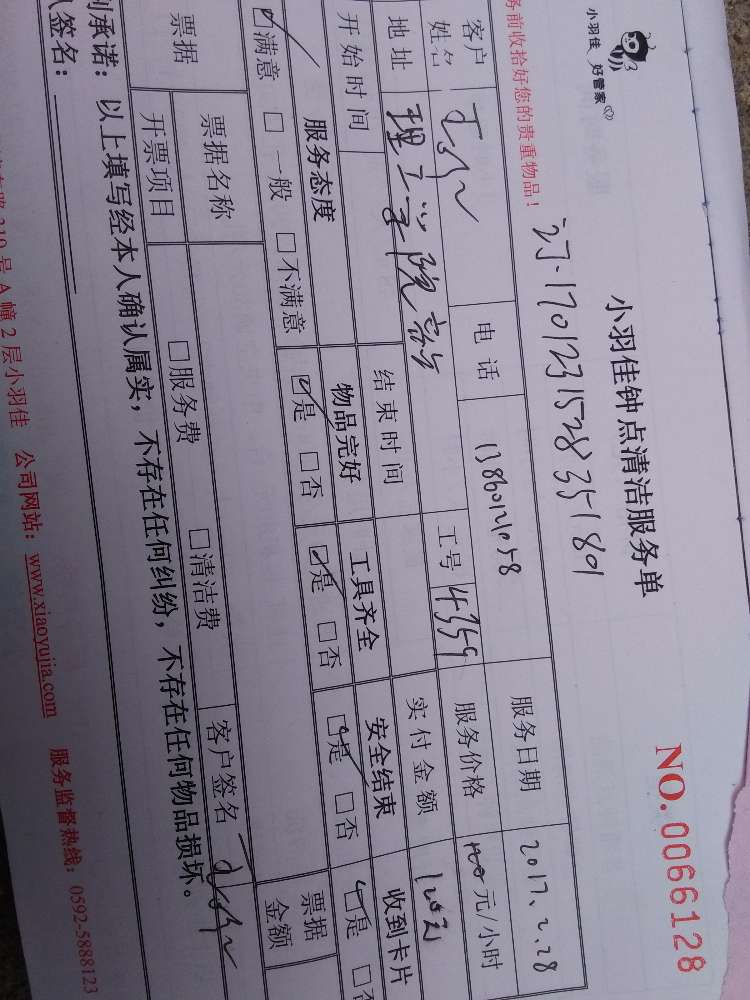 小羽佳 好管家
小羽佳钟点清洁服务单
NO. 0066128
订·1701231528351801
务前收拾好您的贵重物品！
客户姓名 电话 13860121058 服务日期 2017.2.28
地址 理工学院 工号 4359 服务价格 元/小时
开始时间 结束时间 实付金额
服务态度 物品完好 工具齐全 安全结束 收到卡片
☑满意 □一般 □不满意 ☑是 □否 ☑是 □否 ☑是 □否 ☑是 □否
票据 票据名称 □服务费 □清洁费 票据金额
开票项目 客户签名
承诺：以上填写经本人确认属实，不存在任何纠纷，不存在任何物品损坏。
签名：
号 A 幢 2 层小羽佳 公司网站：www.xiaoyujia.com 服务监督热线：0592-5888123